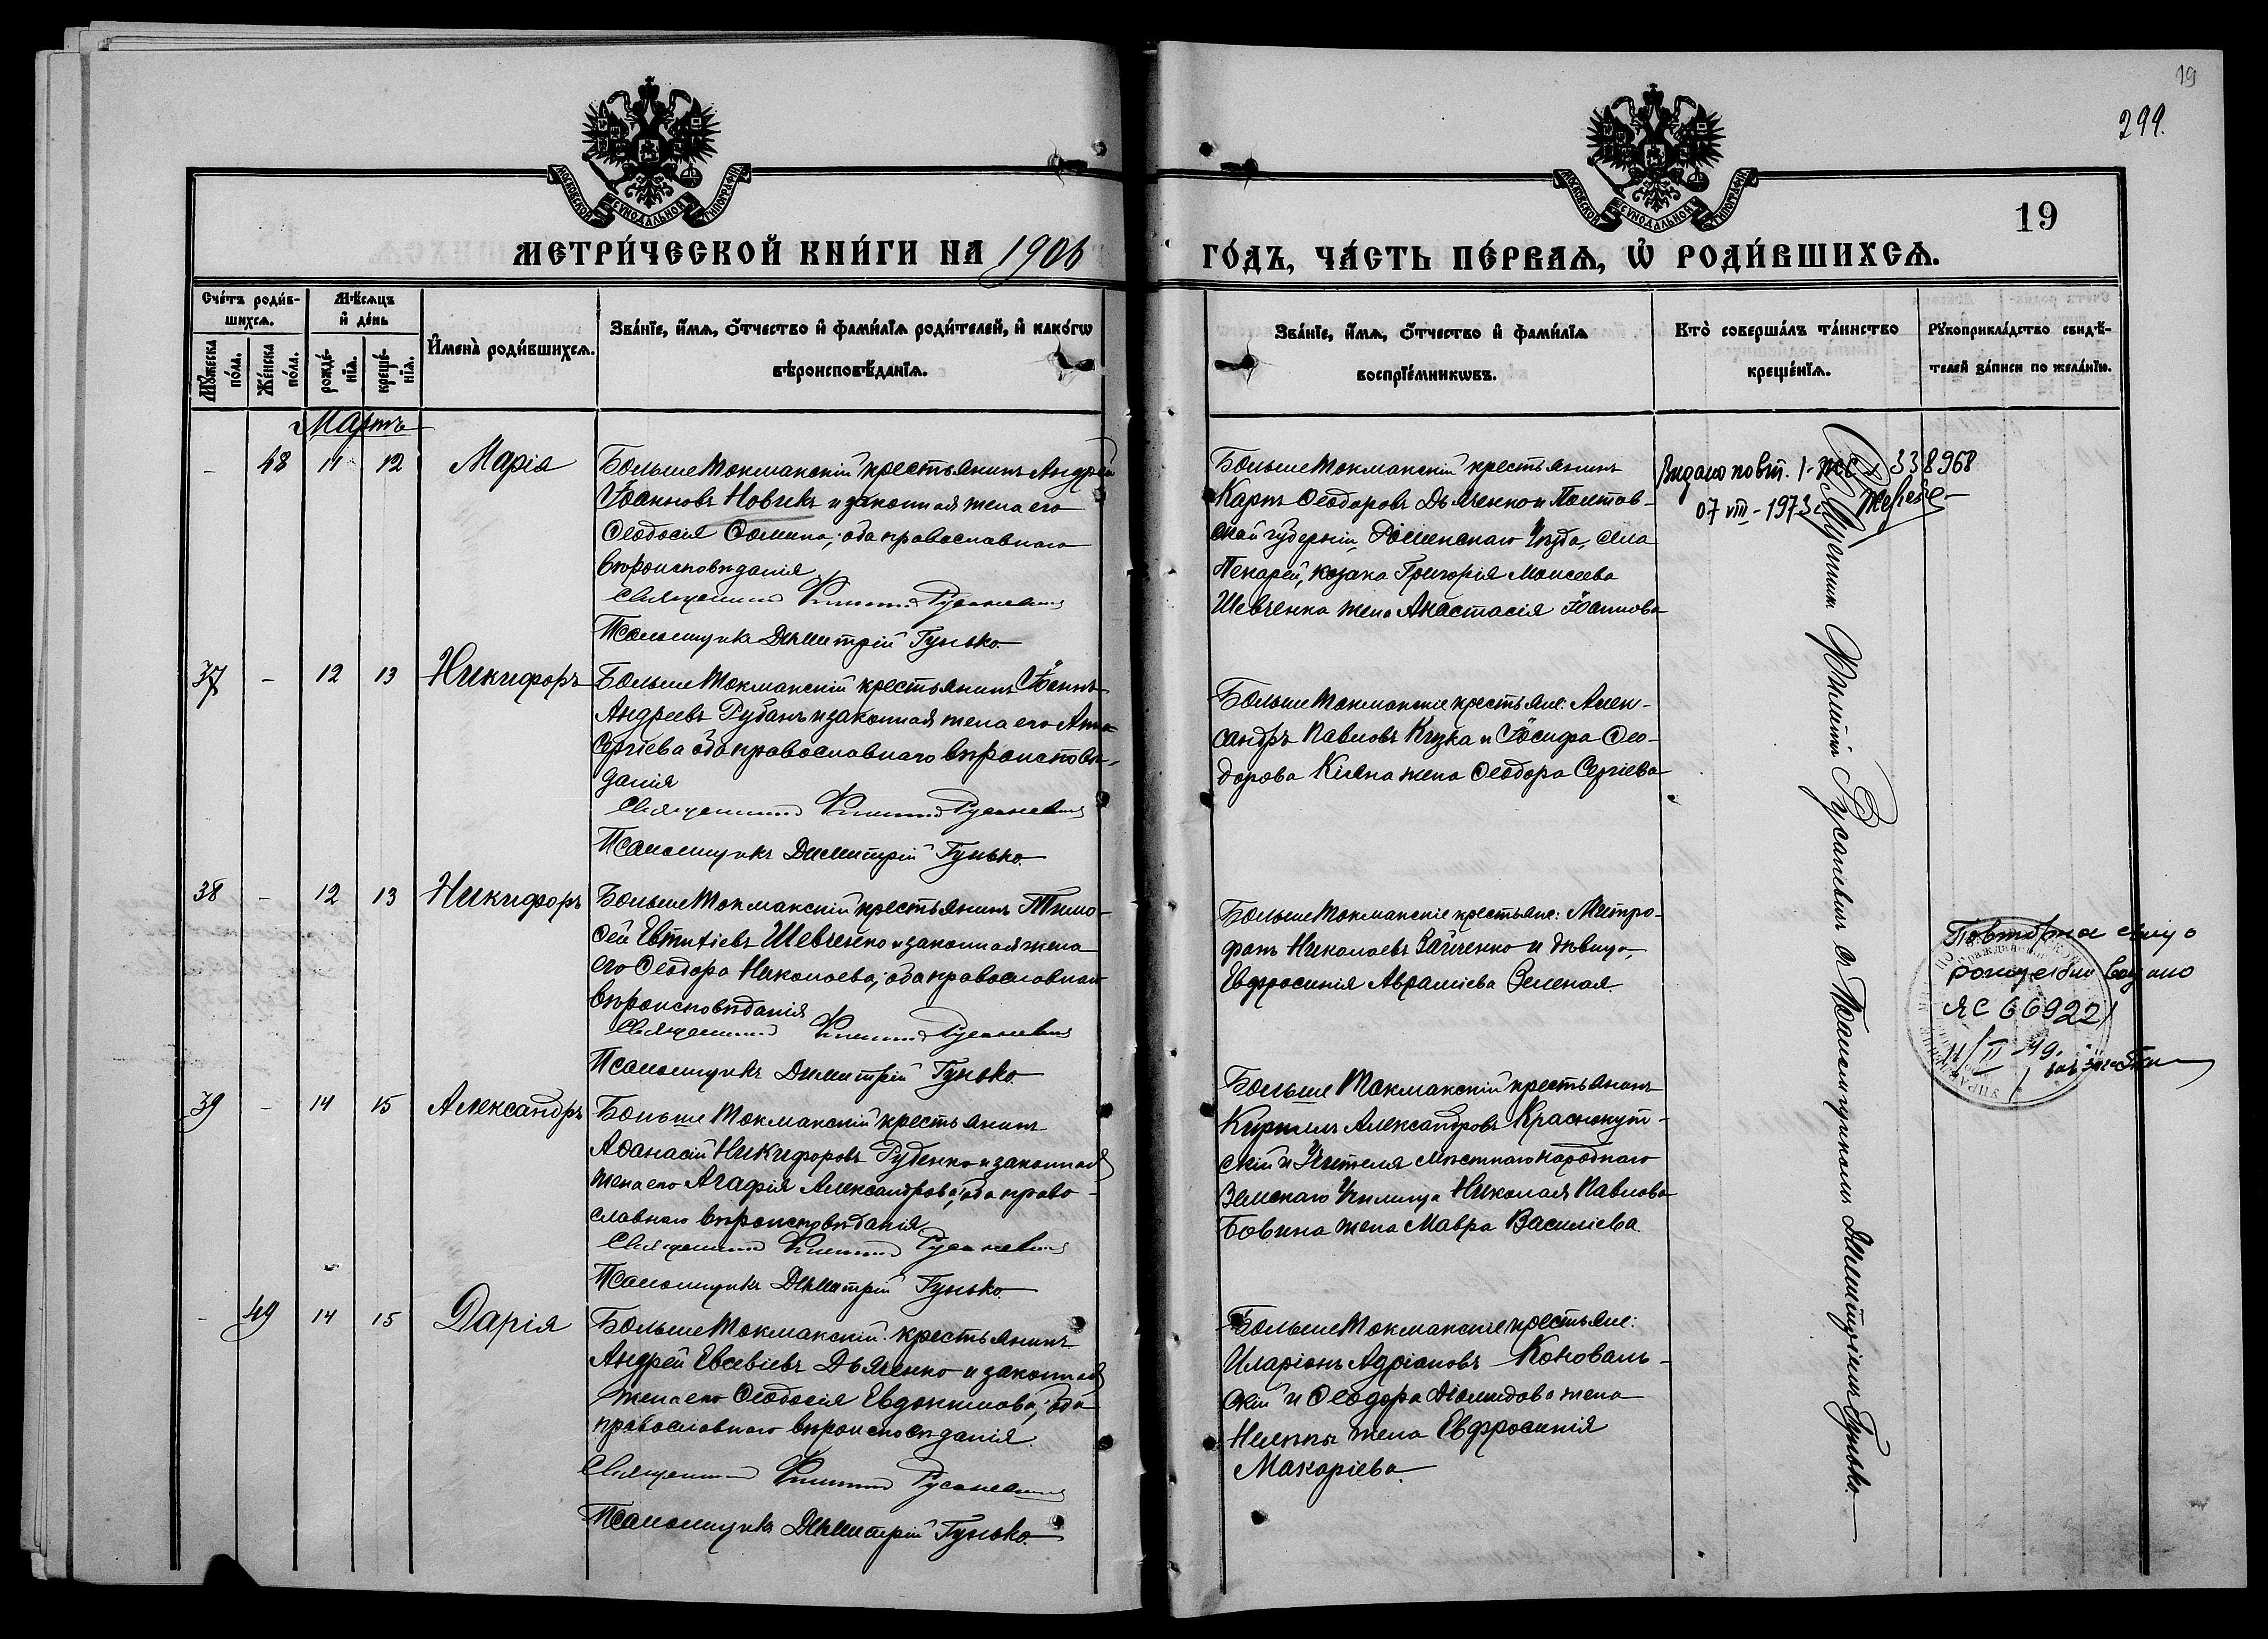 19
299.
МОСКОВСКОЙ СѴНОДАЛЬНОЙ ТИПОГРАФІИ
МОСКОВСКОЙ СѴНОДАЛЬНОЙ ТИПОГРАФІИ
19
МЕТРИ́ЧЕСКОЙ КНИ́ГИ НА 1906
ГО́ДЪ, ЧА́СТЬ ПЕ́РВАѦ, Ѡ҆ РОДИ́ВШИХСѦ.
Сче́тъ роди́в-
шихсѧ.
Мѣ́сѧцъ
и҆ де́нь
Мꙋ́жеска
по́ла.
Же́нска
по́ла.
рожде́-
нїѧ.
креще́-
нїѧ.
И҆мена̀ роди́вшихсѧ.
Зва́нїе, и҆́мѧ, ѻ҆́тчество и҆ фами́лїѧ роди́телей, и҆ како́гѡ
вѣроисповѣ́данїѧ.
Зва́нїе, и҆́мѧ, ѻ҆́тчество и҆ фами́лїѧ
воспрїе́мникѡвъ.
Кто̀ соверша́лъ та́инство
креще́нїѧ.
Рꙋкоприкла́дство свидѣ́-
телей за́писи по жела́нїю.
Мартъ
- 48 11 12 Марія
Больше Токмакскій крестьянинъ Андрей
Іоанновъ Новикъ и законная жена его
Ѳеодосія Ѳомина, оба православнаго
вѣроисповѣданія
Священникъ Русаневичъ
Псаломщикъ Димитрій Гунько.
Больше Токмакскій крестьянинъ
Карпъ Ѳеодоровъ Дьяченко и Полтав-
ской губерніи, Роменскаго Уѣзда, села
Пекарей, козака Григорія Моисеева
Шевченка жена Анастасія Іоаннова
Видано повт. 1- 338968
07 VIII - 1973
37 - 12 13 Никифоръ
Больше Токмакскій крестьянинъ Іоаннъ
Андреевъ Рубанъ и законная жена его Анна
Сергіева оба православнаго вѣроисповѣ-
данія
Священникъ Русаневичъ
Псаломщикъ Димитрій Гунько.
Больше Токмакскіе крестьяне: Алек-
сандръ Павловъ Кузка и Іосифа Ѳео-
дорова Кіяна жена Ѳеодора Сергіева
38 - 12 13 Никифоръ
Больше Токмакскій крестьянинъ Тимо-
ѳей Евтихіевъ Шевченко и законная жена
его Ѳеодора Николаева, оба православнаго
вѣроисповѣданія
Священникъ Русаневичъ
Псаломщикъ Димитрій Гунько.
Больше Токмакскіе крестьяне: Митро-
фанъ Николаевъ Зайченко и дѣвица,
Евфросинія Авраміева Зеленая.
Повторна
рождении видано
ЯС 66922
11/II-49.
39 - 14 15 Александръ
Больше Токмакскій крестьянинъ
Аѳанасій Никифоровъ Руденко и законная
жена его Агафія Александрова, оба право-
славнаго вѣроисповѣданія
Священникъ Русаневичъ
Псаломщикъ Димитрій Гунько.
Больше Токмакскій крестьянинъ
Кириллъ Александровъ Краснокут-
скій и Учителя мѣстнаго народнаго
Земскаго Училища Николая Павлова
Бовина жена Мавра Василіева.
- 49 14 15 Дарія
Больше Токмакскій крестьянинъ
Андрей Евсевіевъ Дьяченко и законная
жена его Ѳеодосія Евдокимова, оба
православнаго вѣроисповѣданія.
Священникъ Русаневичъ
Псаломщикъ Димитрій Гунько.
Больше Токмакскіе крестьяне:
Иларіонъ Адріановъ Коноваль-
скій и Ѳеодора Діомидова жена
жена Евфросинія
Макаріева.
Священникъ Русаневичъ съ Псаломщикомъ Димитріемъ Гунько.